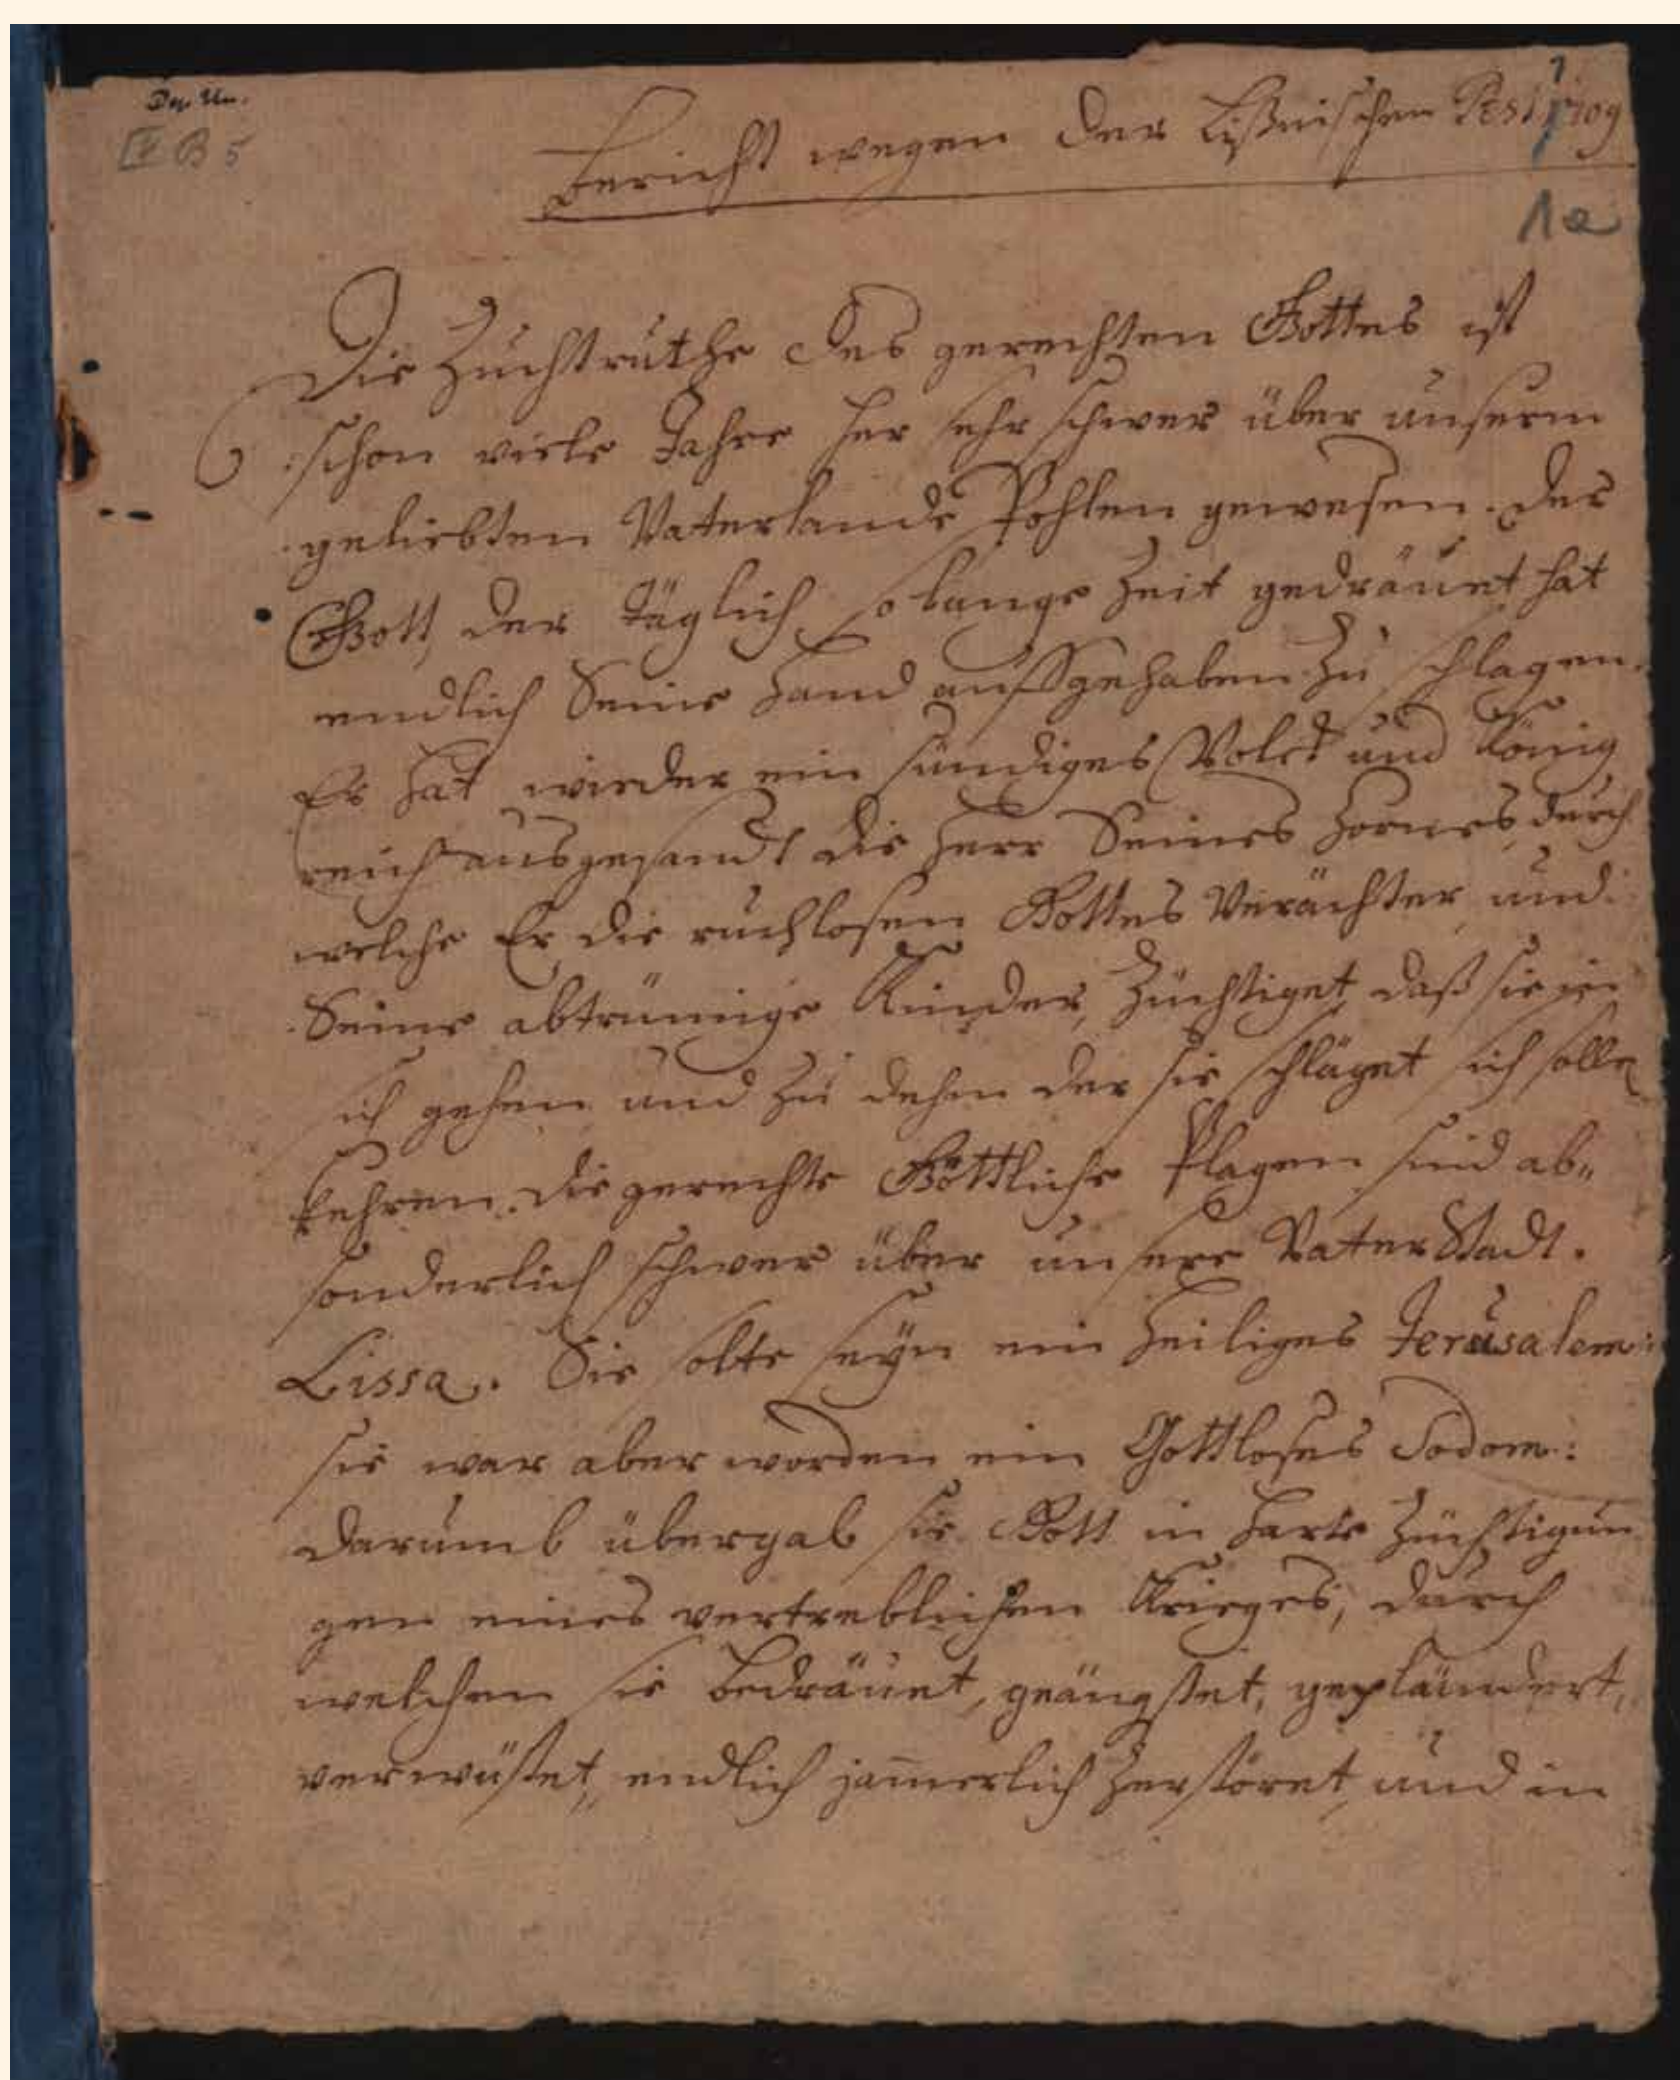 Dep. Un.
IV B 5
1
Bericht wegen der Lißnischen Pest 1709
1a
Die Zuchtruthe des gerechten Gottes ist
schon viele Jahre her sehr schwer über unserm
geliebten Vaterlande Pohlen gewesen. Der
Gott, der täglich so lange Zeit gedräuet hat
endlich Seine Hand auffgehaben zu schlagen.
Er hat wieder ein sündiges Volck und König
reich ausgesandt die Heere Seines Zornes, durch
welche Er die ruchlosen Gottes Verächter und
Seine abtrünnige Kinder, züchtiget, daß sie in
sich gehen und zu dehm der sie schläget sich solle
kehren. Die gerechte Göttliche Plagen sind ab„
sonderlich schwer über unsere Vater Stadt.
Lissa. Sie solte seyn ein Heiliges Jerusalem:
sie war aber worden ein Gottloses Sodom:
darumb übergab sie Gott in harte Züchtigun
gen eines verderblichen Krieges, durch
welchen sie bedräuet, geängstet, geplündert,
verwüstet, endlich jam̅erlich zerstöret, und in